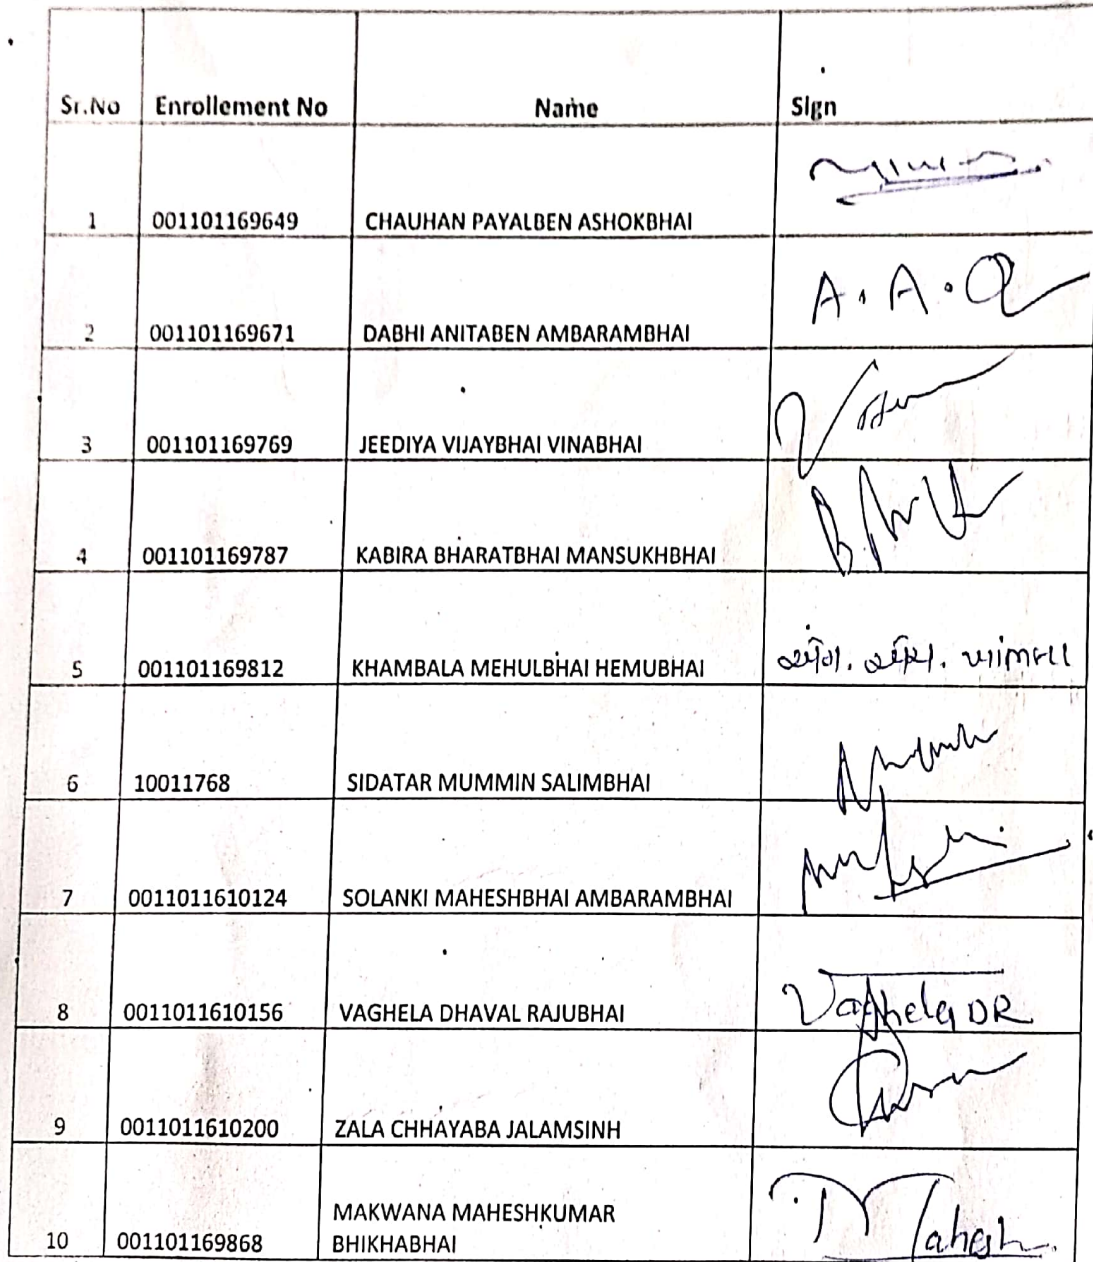 Sr.No Enrollement No Name Sign
1 001101169649 CHAUHAN PAYALBEN ASHOKBHAI
2 001101169671 DABHI ANITABEN AMBARAMBHAI A. A. D
3 001101169769 JEEDIYA VIJAYBHAI VINABHAI
4 001101169787 KABIRA BHARATBHAI MANSUKHBHAI
5 001101169812 KHAMBALA MEHULBHAI HEMUBHAI
6 10011768 SIDATAR MUMMIN SALIMBHAI
7 0011011610124 SOLANKI MAHESHBHAI AMBARAMBHAI
8 0011011610156 VAGHELA DHAVAL RAJUBHAI Vaghela DR
9 0011011610200 ZALA CHHAYABA JALAMSINH
MAKWANA MAHESHKUMAR
10 001101169868 BHIKHABHAI Mahesh